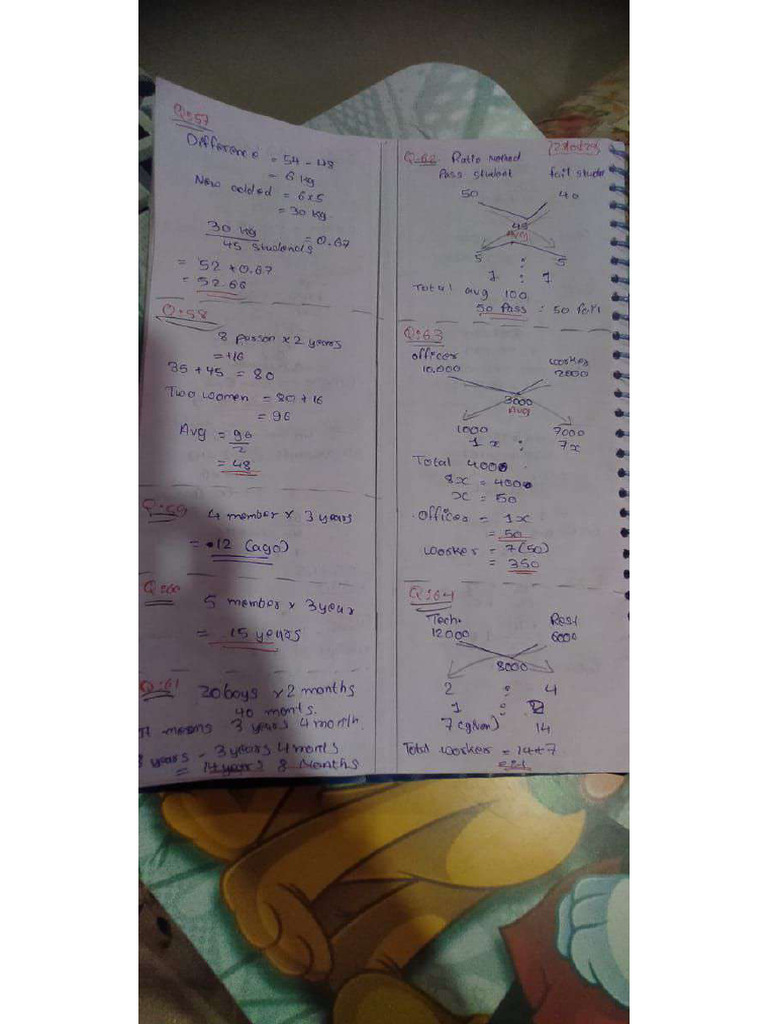 Q:57
Difference = 54 - 48
= 6 kg
New added = 6x5
= 30 kg
30 kg / 45 students = 0.67
= 52 + 0.67
= 52.66
Q:58
8 person x 2 years
= +16
35 + 45 = 80
Two women = 80 + 16
= 96
Avg = 96/2
= 48
Q:59
4 member x 3 years
= 12 (ago)
Q:60
5 member x 3 year
= 15 years
Q:61
20 boys x 2 months
40 monts.
means 3 years 4 month.
8 years - 3 years 4 monts
= 14 years 8 Months
Q:62 Ratio method
Pass student fail stude
50 40
45
Avg
5 : 5
1 : 1
Total avg 100
50 Pass : 50 fail
Q:63
officer worker
10,000 2000
3000
Avg
1000 7000
1x : 7x
Total 4000
8x = 4000
x = 50
officer = 1x
= 50
worker = 7(50)
= 350
Q:64
Tech. Rest
12000 6000
8000
2 : 4
1 : 2
7 (given) 14
Total worker = 14+7
= 21